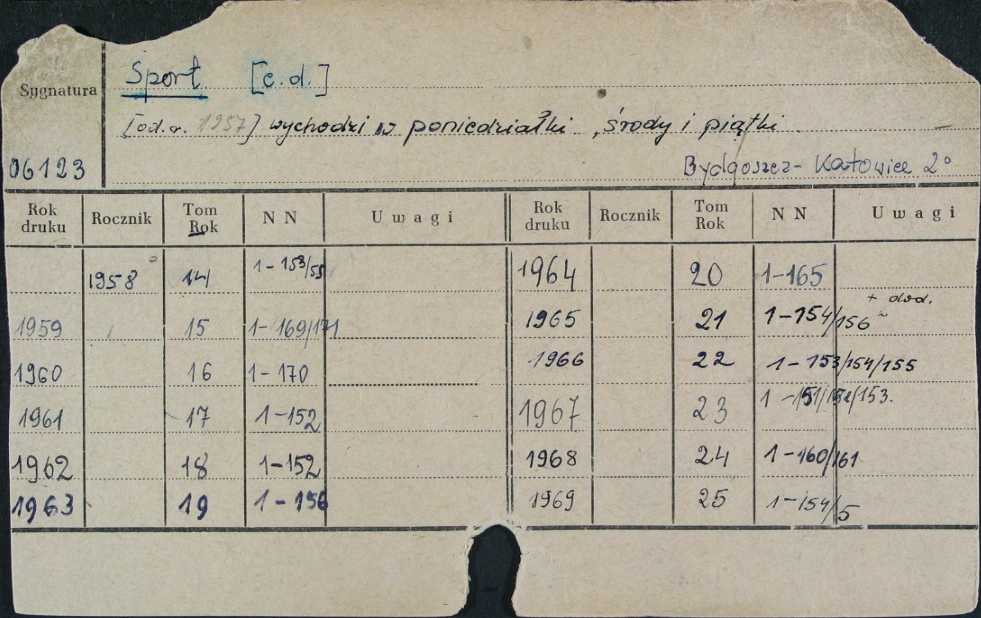 Sport [c.d.]
Sygnatura
[od.r. 1957] wychodzi w poniedziałki, środy i piątki.
06123
Bydgoszcz-Katowice 2°
Rok druku Rocznik Tom Rok N N Uwagi Rok druku Rocznik Tom Rok N N Uwagi
1958 14 1-153/55 1964 20 1-165
1959 15 1-169/171 1965 21 1-154/156 + dod.
1960 16 1-170 1966 22 1-153/154/155
1961 17 1-152 1967 23 1-151/152/153.
1962 18 1-152 1968 24 1-160/161
1963 19 1-156 1969 25 1-154/5